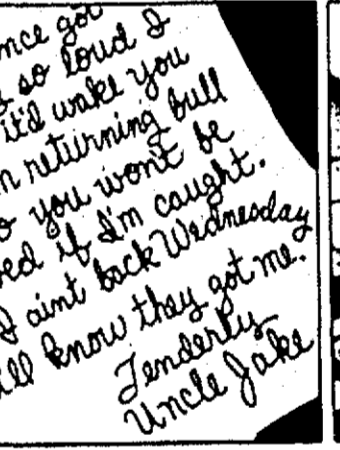 once got
so loud I
it'd wake you
returning bull
you wont be
if I'm caught.
I aint back Wednesday
know they got me.
Tenderly
Uncle Jake